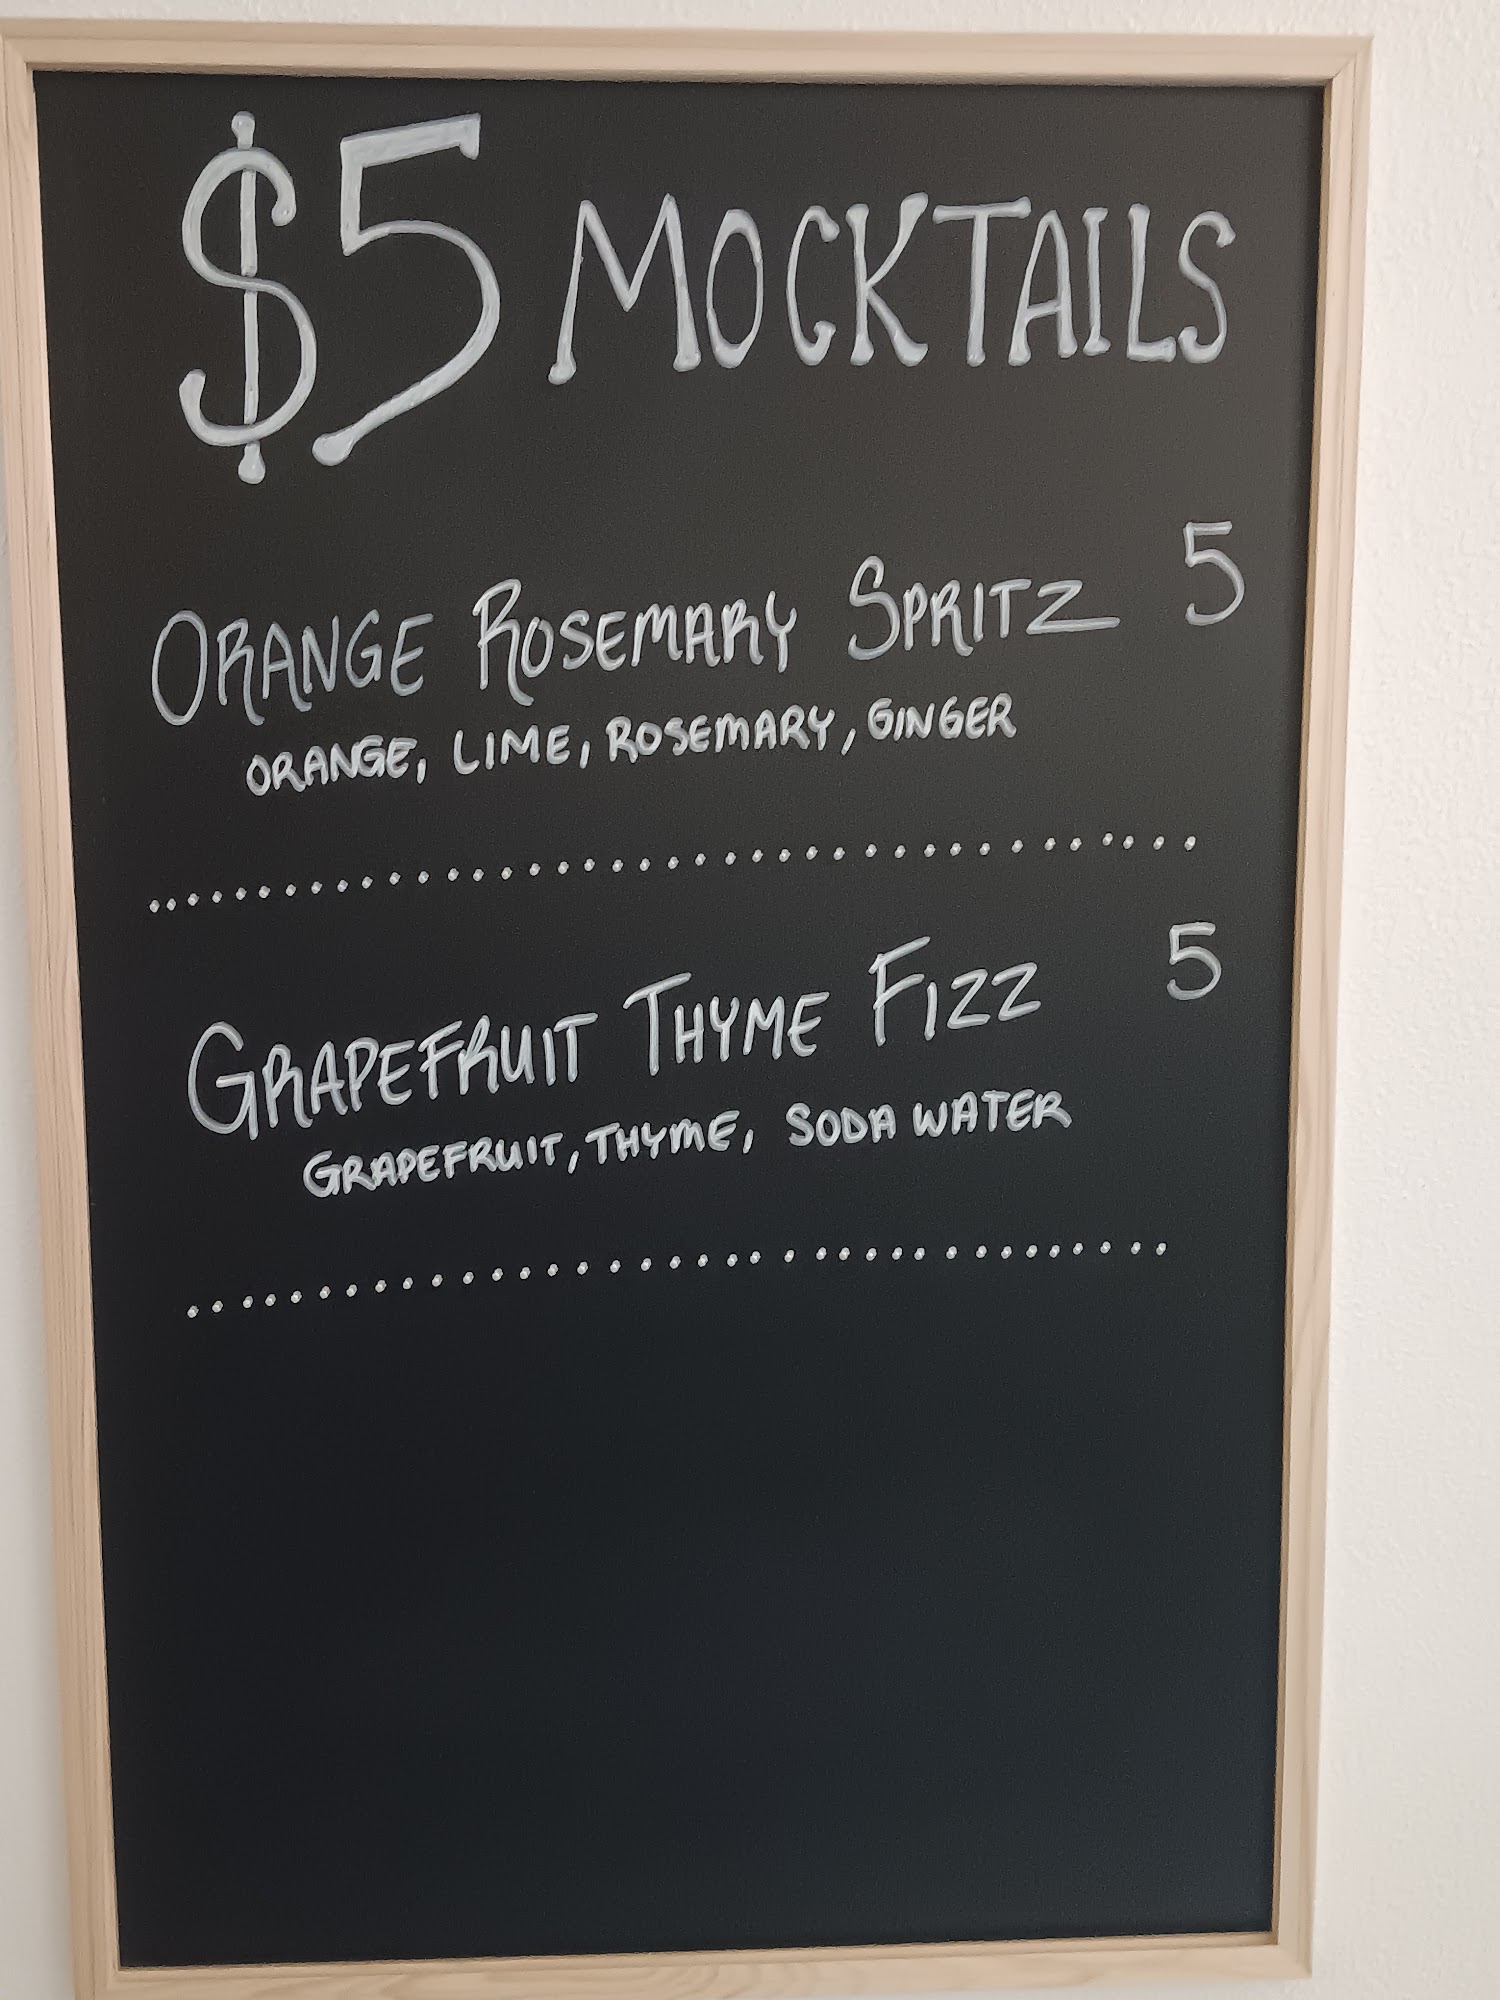 $5 MOCKTAILS
ORANGE ROSEMARY SPRITZ 5
ORANGE, LIME, ROSEMARY, GINGER
GRAPEFRUIT THYME FIZZ 5
GRAPEFRUIT, THYME, SODA WATER